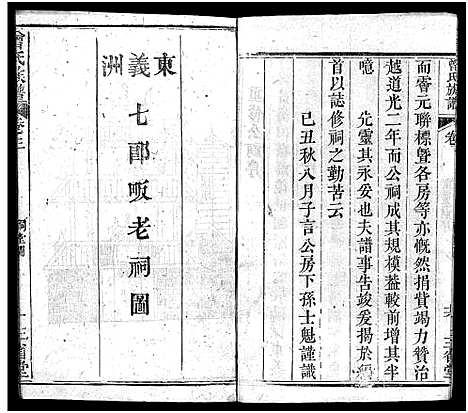 曾氏族譜 卷
而睿元聯標曁各房等亦慨然捐貲竭力贊治
越道光二年而公祠成其規模葢較前增其半
噫 先靈其永妥也夫譜事告竣爰揚於
首以誌修祠之勤苦云
己丑秋八月子言公房下孫士魁謹識
三省堂
東義洲 七郎畈老祠圖
曾氏族譜 卷三
祠堂圖
一 三省堂